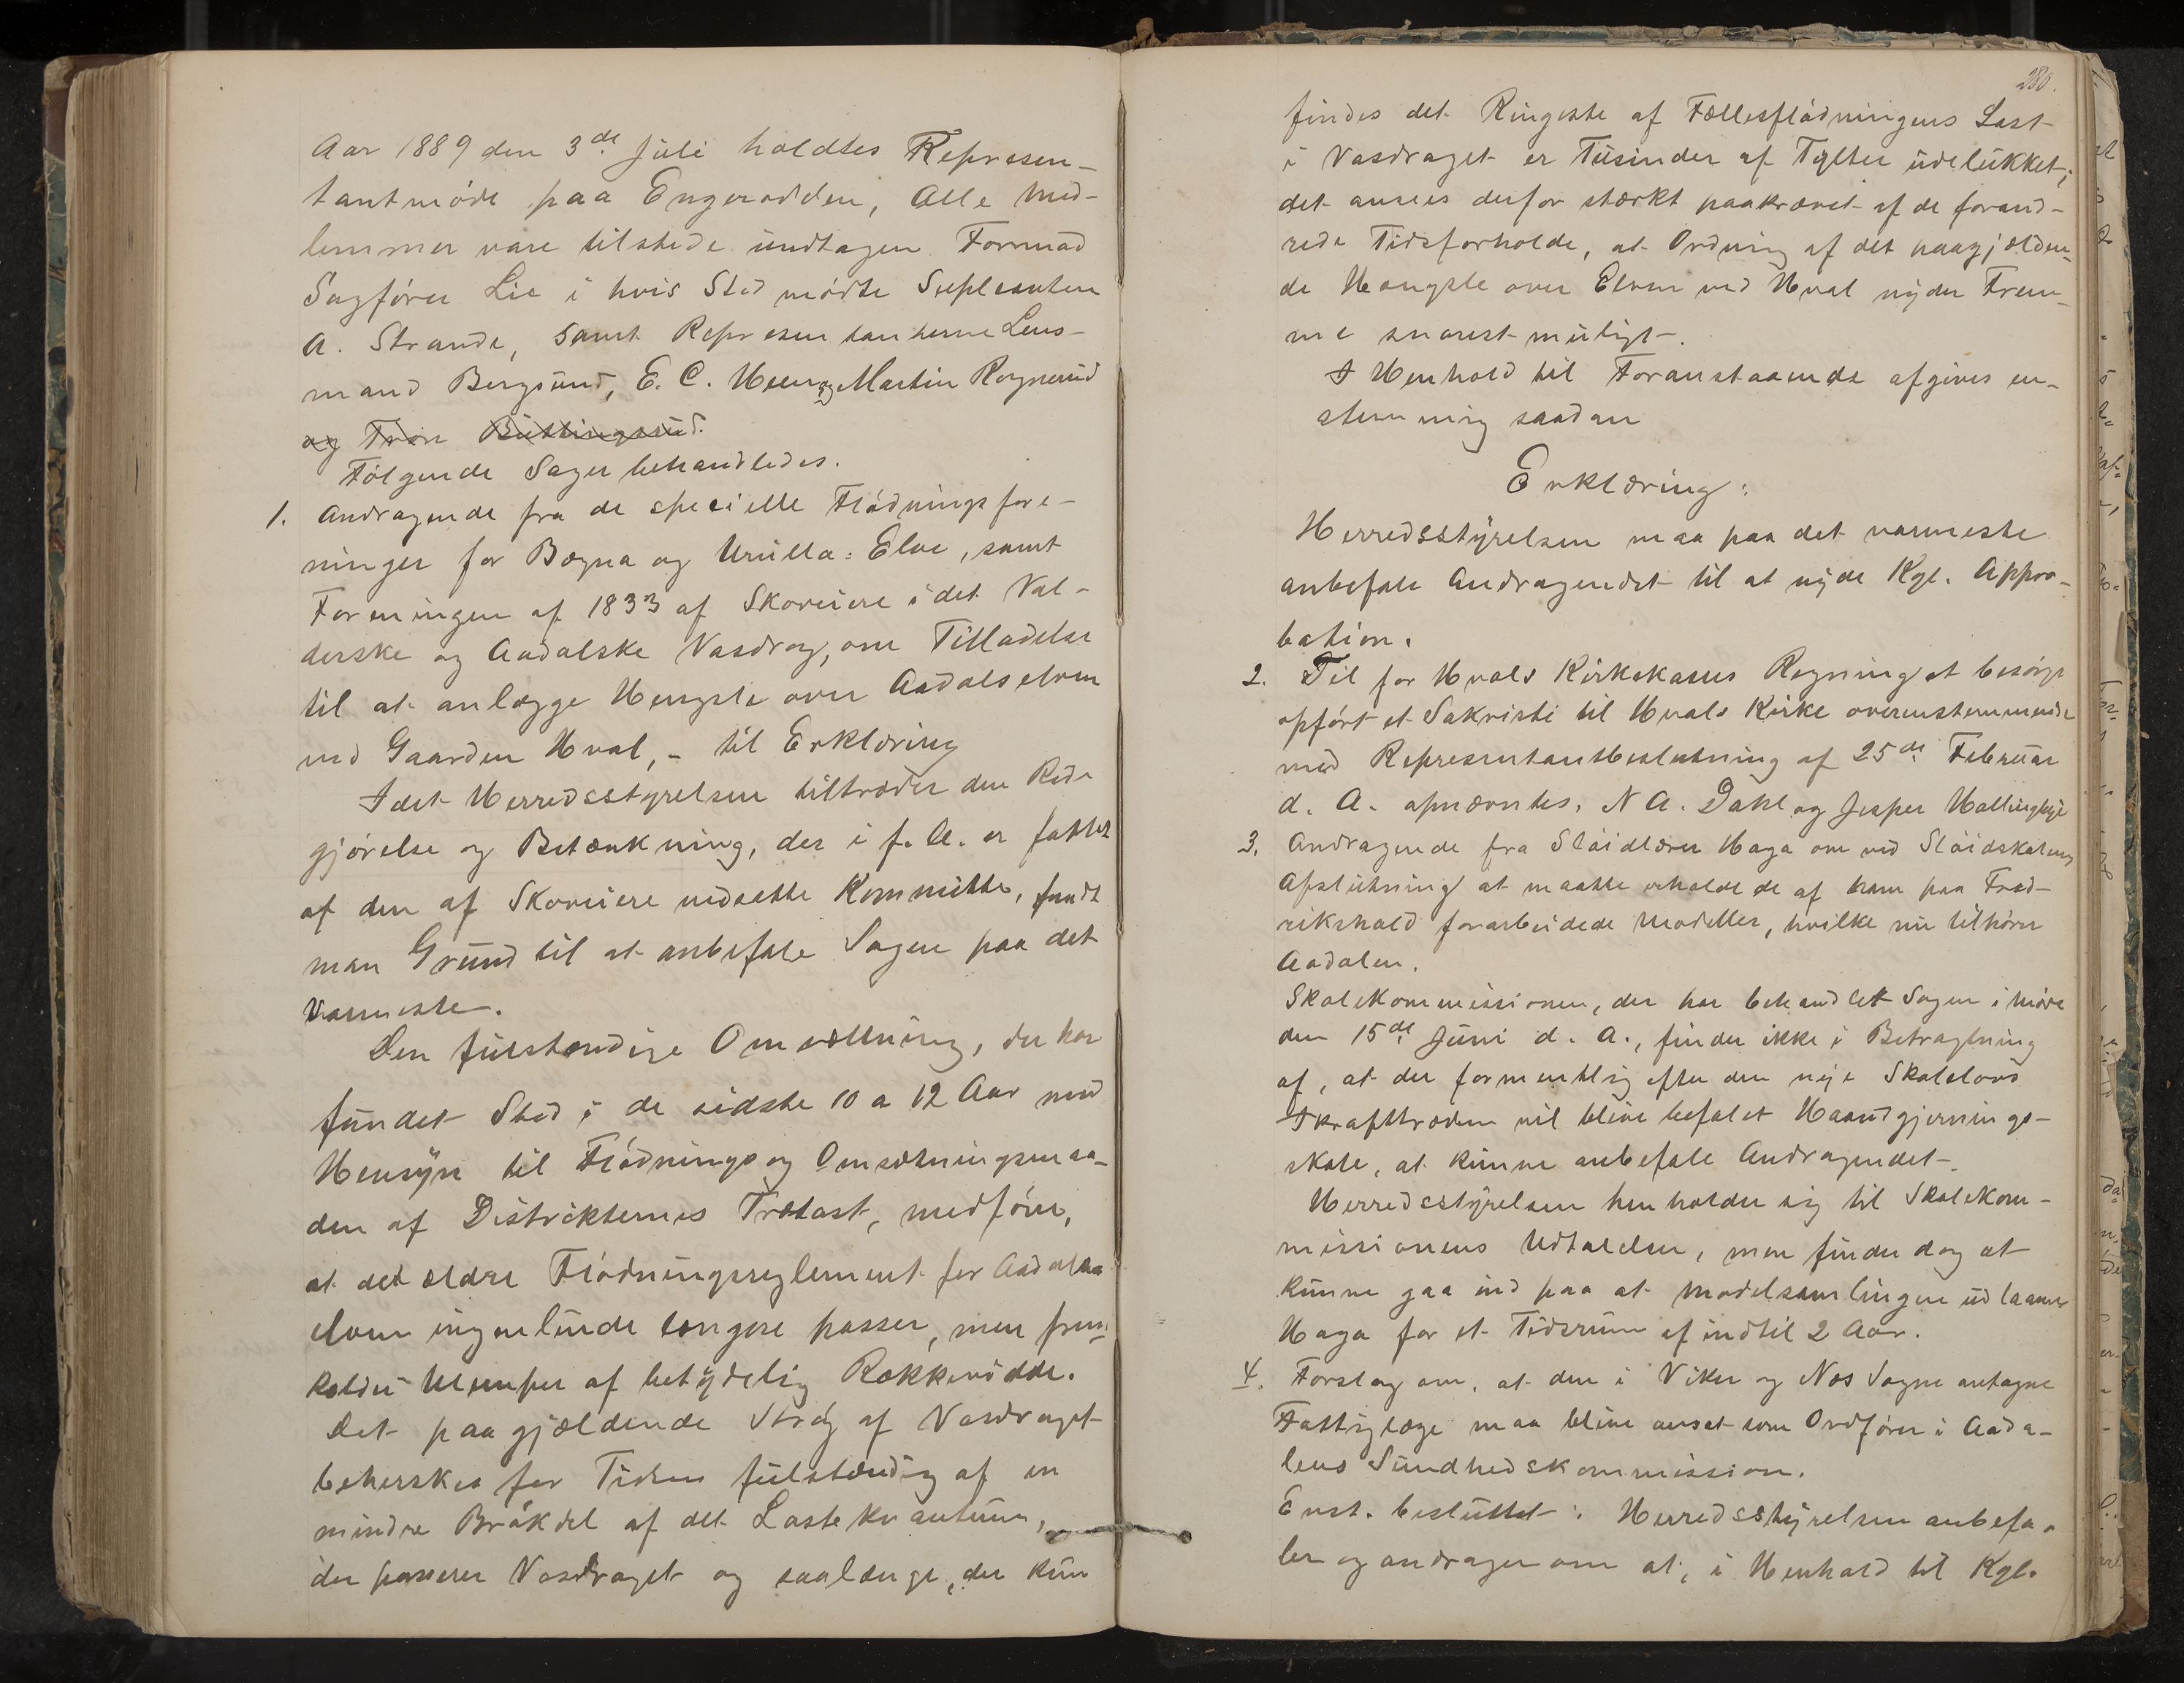 Aar 1889 den 3de Juli holdtes Represen-
tantmøde paa Engerodden, Alle Med-
lemmer vare tilstede undtagen Formand
Sagfører Lie i hvis Sted mødte Supleanten
A. Strande, samt Representanterne Lens-
mand Bergsund, E. C. Heen og Martin Rognerud
og Tron Buttingsrud.
Følgende Sager behandledes.
1. Andragende fra de specielle Flødningsfore-
ninger for Bægna og Urulla-Elve, samt
Foreningen af 1833 af Skoveiere i det Val-
derske og Aadalske Vasdrag, om Tilladelse
til at anlægge Hengsle over Aadalselven
ved Gaarden Hval, - til Erklæring
Idet Herredsstyrelsen tiltræder den Rede
gjørelse og Betænkning, der i f. A. er fattet
af den af Skoveiere nedsatte Kommitte, fandt
man Grund til at anbefale Sagen paa det
varmeste.
Den fuldstændige Omveltning, der har
fundet Sted i de sidste 10 a 12 Aar med
Hensyn til Flødnings og Omsætningsmaa-
den af Distrikternes Trælast, medfører,
at det ældre Flødningsreglement for Aadals
elven ingenlunde længere passer, men frem-
kalder Ulemper af betydelig Rækkevidde.
Det paagjældende Strøg af Vasdraget
beherskes for Tiden fulstændig af en
mindre Brøkdel af det Lastekvantum,
der passerer Vasdraget og saalænge, der kun
280.
findes det Ringeste af Fællesflødningens Last
i Vasdraget er Tusinder af Tylter udelukket;
det ansees derfor stærkt paakrævet af de forand-
rede Tidsforholde, at Ordning af det paagjælden-
de Hængsle over Elven ved Hval nyder Frem-
me snarest muligt.
I Henhold til Foranstaaende afgives en-
stemmig saadan
Erklæring:
Herredsstyrelsen maa paa det varmeste
anbefale Andragendet til at nyde Kgl. Appro-
bation.
2. Til for Hvals Kirkekasses Regning at besørge
opført et Sakristi til Hvals Kirke overenstemmende
med Representantbeslutning af 25de Februar
d. A. opnævntes, N A. Dahl og Jesper Hallingbye
3. Andragende fra Sløidlærer Haga om ved Sløidskolens
Afslutning at maatte erholde de af ham paa Fred-
rikshald forarbeidede Modeller, hvilke nu tilhører
Aadalen.
Skolekommissionen, der har behandlet Sagen i Møde
den 15de Juni d. A., finder ikke i Betragtning
af, at der formentlig efter den nye Skolelovs
Ikrafttræden vil blive befalet Haandgjernings-
skole, at kunne anbefale Andragendet.
Herredsstyrelsen henholder sig til Skolekom-
missionens Udtalelser, men finder dog at
kunne gaa ind paa at Modelsamlingen udlaanes
Haga for et Tidsrum af indtil 2 Aar.
4. Forslag om, at den i Viker og Nes Sogne antagne
Fattiglæge maa blive anset som Ordfører i Aada-
lens Sundhedskommission.
Enst. besluttet: Herredsstyrelsen anbefa-
ler og andrager om at, i Henhold til Kgl.